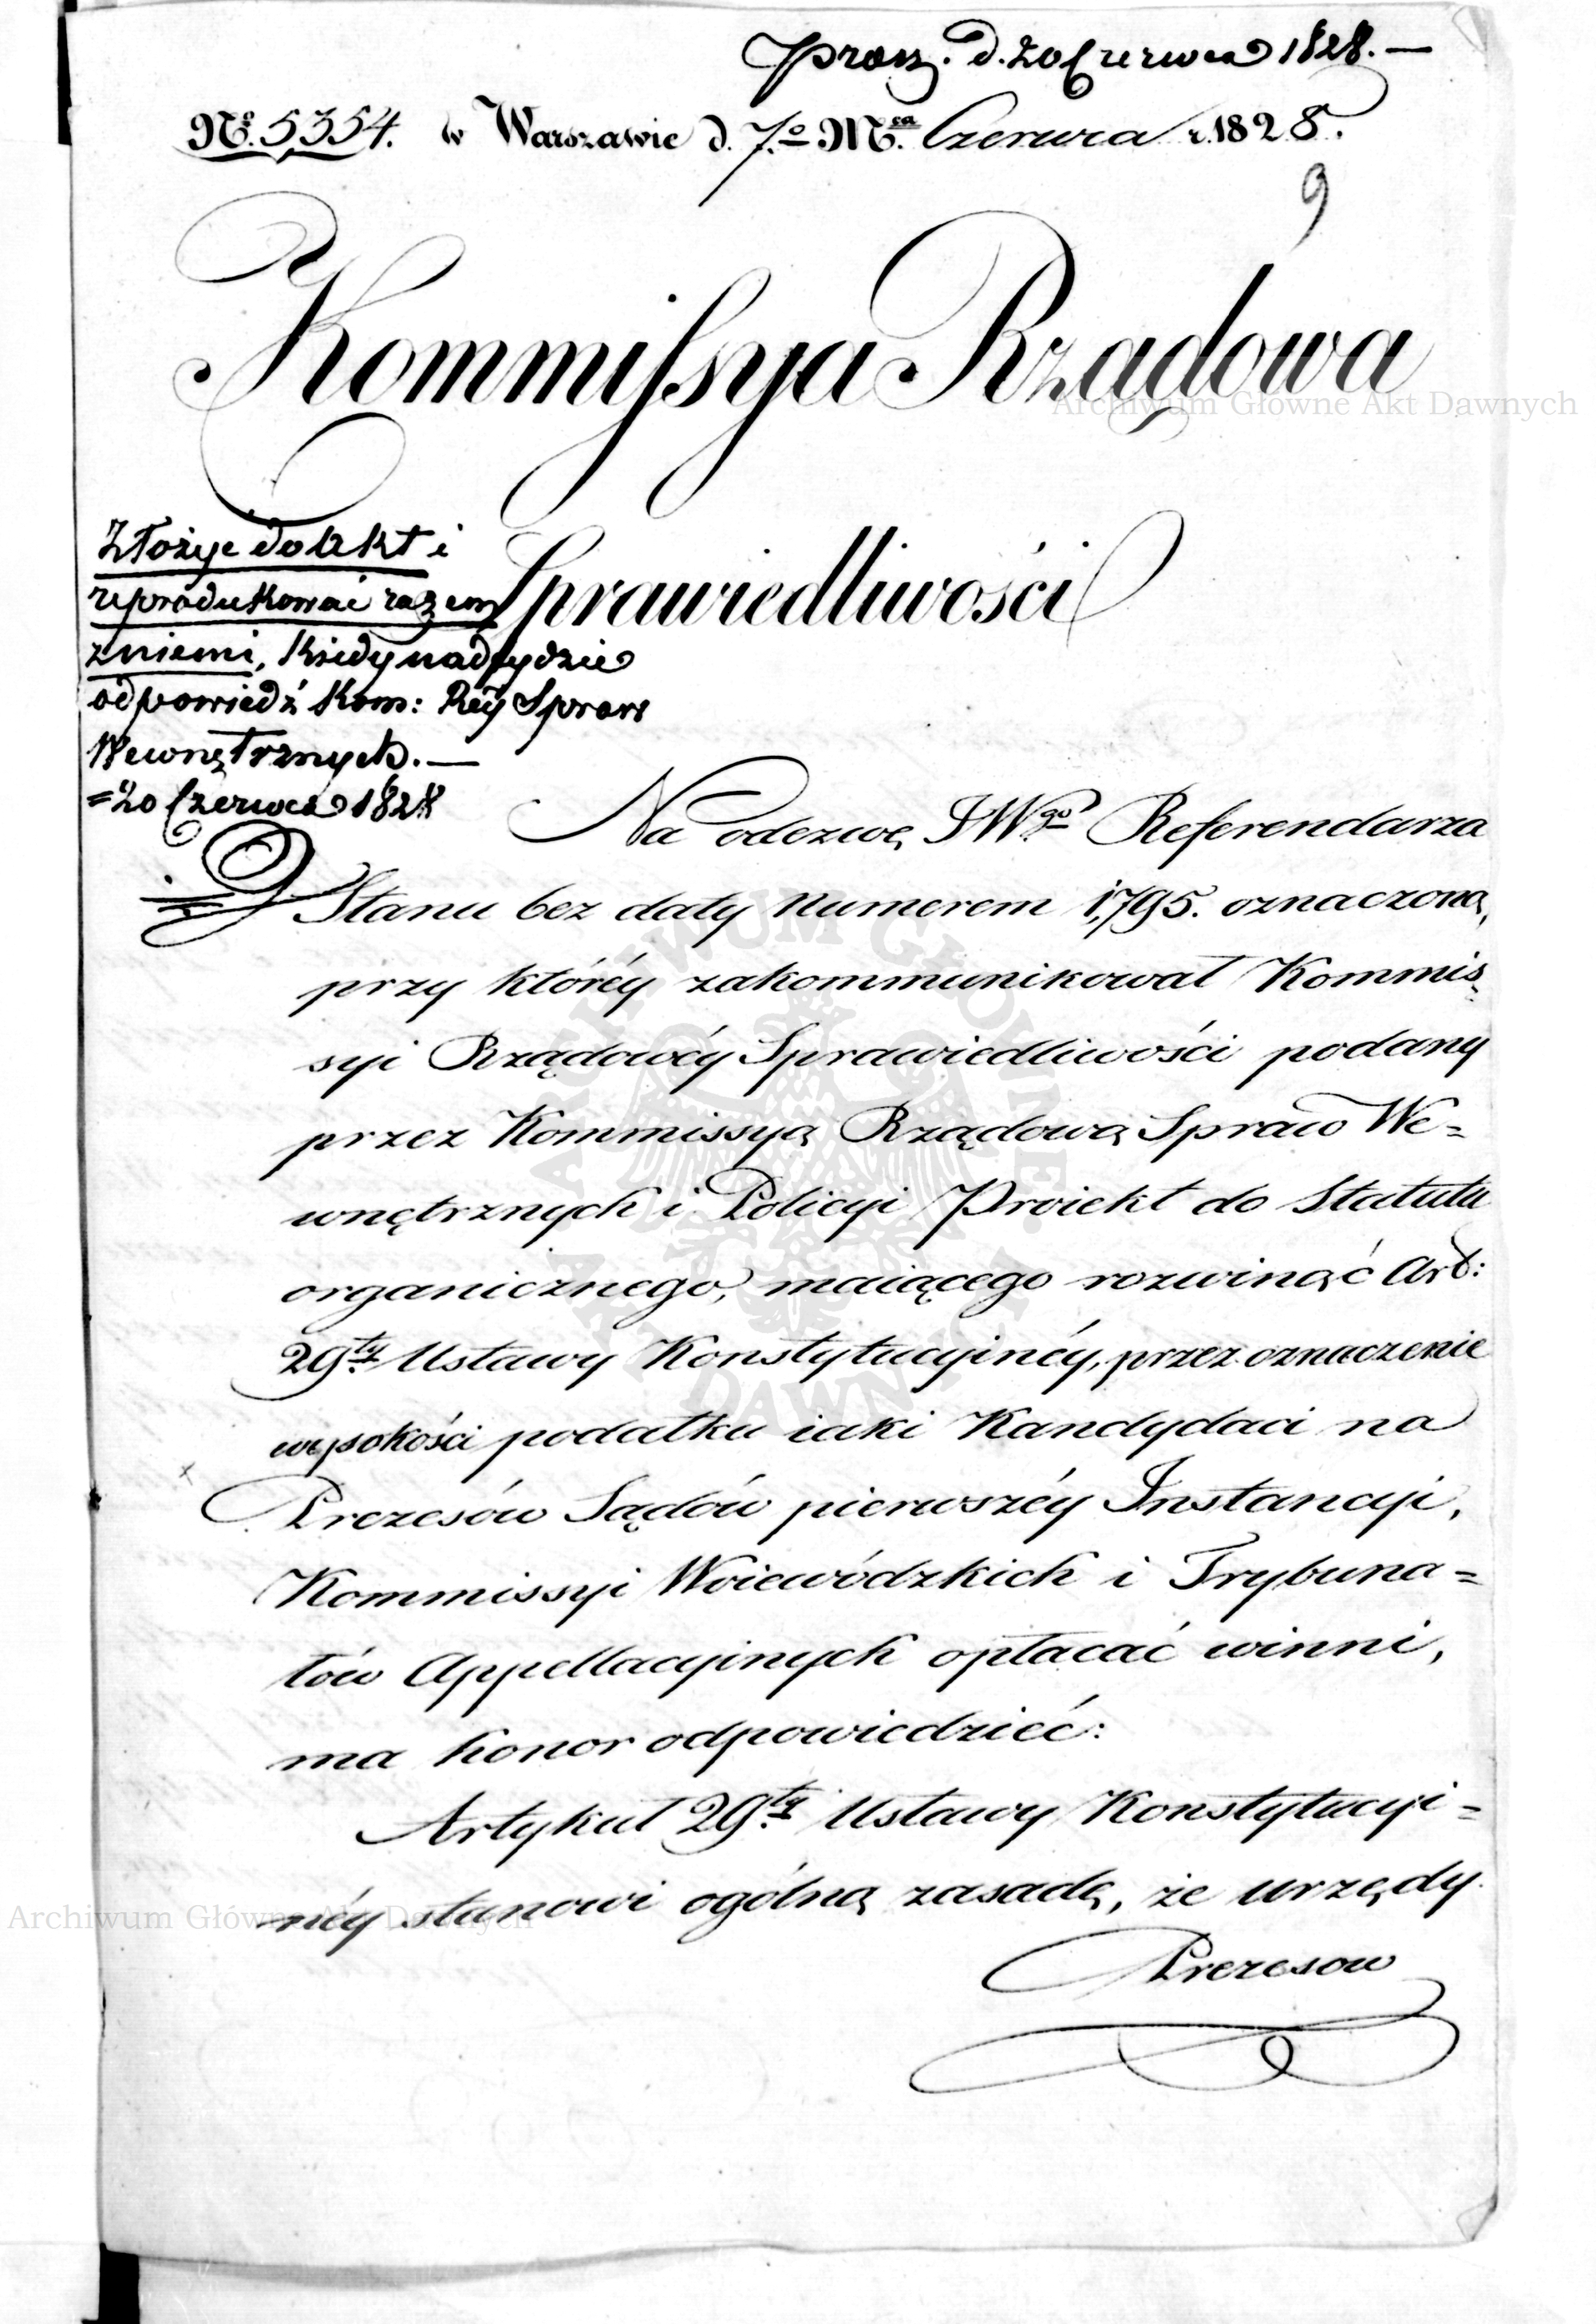 prez. d. 20 Czerwca 1828. —
Nº. 5354. w Warszawie d. 7.º Mca. Czerwca r. 1828.
9
Kommissya Rządowa
Sprawiedliwości
Złożyć do Akt i
reprodukować razem
z niemi, kiedy nadeydzie
odpowiedź Kom: Réy Spraw
Wewnętrznych. —
= 20 Czerwca 1828
Na odezwę JWgo Referendarza
Stanu bez daty numerem 1,795. oznaczoną,
przy któréy zakommunikował Kommis-
syi Rządowéy Sprawiedliwości podany
przez Kommissyą Rządową Spraw We=
wnętrznych i Policyi Proiekt do Statutu
organicznego, maiącego rozwinąć Art:
29ty. Ustawy Konstytucyinéy, przez oznaczenie
wysokości podatku iaki Kandydaci na
Prezesów Sądów pierwszéy Instancyi,
Kommissyi Woiewódzkich i Trybuna=
łów Appellacyinych opłacać winni,
ma honor odpowiedzieć:
Artykuł 29ty. Ustawy Konstytucyi=
néy stanowi ogólną zasadę, że urzędy
Prezesow
Archiwum Główne Akt Dawnych
ARCHIWUM GŁÓWNE AKT DAWNYCH
Archiwum Główne Akt Dawnych